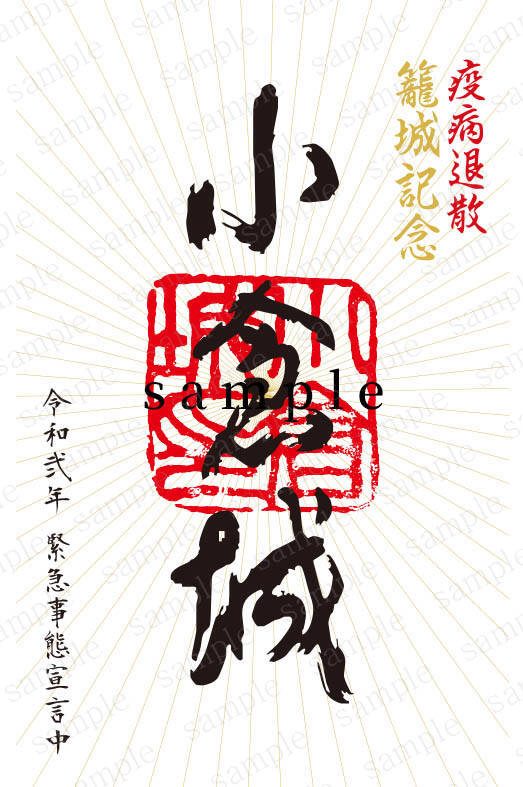 疫病退散
籠城記念
小倉城
sample
令和弐年 緊急事態宣言中